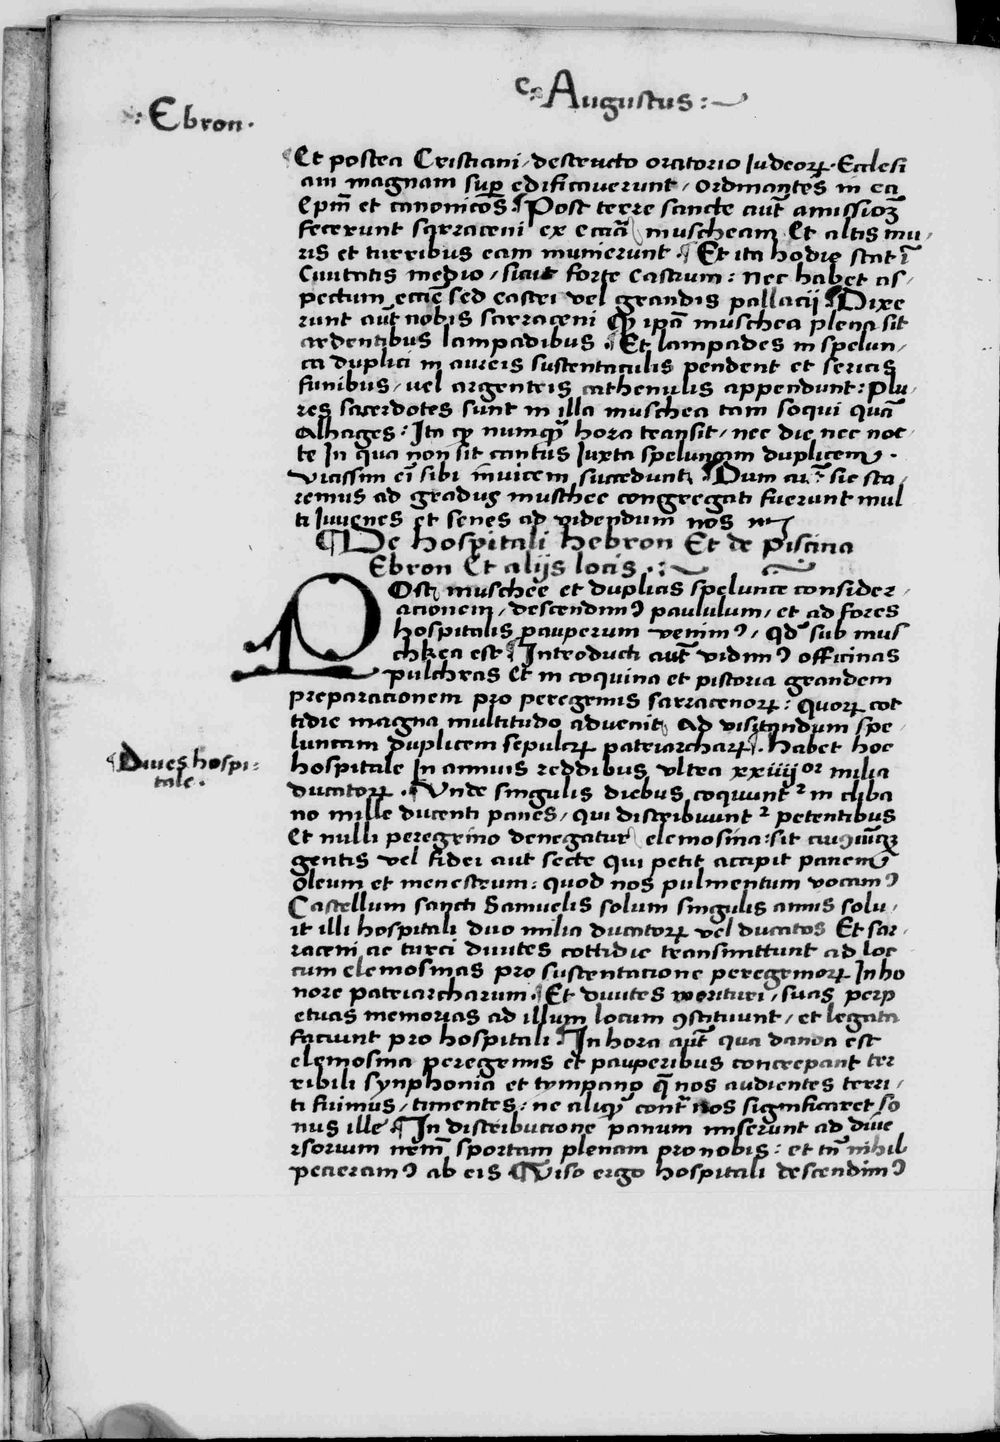 Augustus:
: Ebron.
Et postea Cristiani / destructo oratorio Iudeoꝝ. Ecclesi
am magnam suꝑ edificaverunt / ordinantes in ea
Epm̄ et canonicos. ¶ Post terre sancte aut̄ amissioꝫ
fecerunt sarraceni ex eccīa muscheam Et altis mu /
ris et turribus eam munierunt. ¶ Et ita hodie stat ī
Civitatis medio / sicut forte castrum: nec habet as /
pectum eccīe sed castri vel grandis pallacij ¶ Dixe
runt aut̄ nobis sarraceni ꝙ ipā muschea plena sit
ardentibus lampadibus. ¶ Et lampades in spelun /
ca duplici in aureis sustentaculis pendent et sericis
funibus / vel argenteis cathenulis appendunt: Plu /
res sacerdotes sunt in illa muschea tam soqui quā
Alhages: Ita ꝙ numqͣ hora transit / nec die nec noc /
te In qua non sit cantus Iuxta speluncam duplicem.
vicissim eī sibi īnvicem succedunt. ¶ Dum aut̄ sic sta /
remus ad gradus muschee congregati fuerunt mul
ti Iuvenes et senes ad videndum nos
¶ De hospitali hebron Et de piscina
Ebron Et alijs locis.
POst muschee et duplicis spelunce consider /
acionem / descendimꝰ paululum / et ad fores
hospitalis pauperum venimꝰ / qd̄ sub mus
chea est ¶ Introducti aut̄ vidimꝰ officinas
pulchras Et in coquina et pistoria grandem
preparacionem pro peregrinis sarracenorꝝ: quorꝝ cot
tidie magna multitudo advenit Ad visitandum spe /
luncam duplicem sepulcrꝝ patriarcharꝝ. habet hoc
hospitale In annuis reddibus ultra xxiiij or milia
ducatorꝝ. ¶ Unde singulis diebus coquunt᷑ in cliba
no mille ducenti panes / qui distribuunt᷑ petentibus
Et nulli peregrino denegatur elemosina: sit cuiꝰcūqꝫ
gentis vel fidei aut secte qui petit accipit panem
oleum et menestrum: quod nos pulmentum vocamꝰ
Castellum sancti Samuelis solum singulis annis solu /
it illi hospitali duo milia ducatorꝝ vel ducatos Et sar /
raceni ac turci divites cottidie transmittunt ad loc
cum elemosinas pro sustentacione peregrinorꝝ In ho
nore patriarcharum. ¶ Et divites morituri / suas perp
etuas memorias ad illum locum ꝯstituunt / et legata
faciunt pro hospitali. ¶ In hora aut̄ qua danda est
elemosina peregrinis et pauperibus concrepant ter
ribili synphonia et tympano q̄ nos audientes terri /
ti fuimus / timentes: ne aliqͥd contͣ nos significaret so
nus ille ¶ In distribucione panum miserunt ad dive
rsorium nr̄m sportam plenam pro nobis: et tn̄ nihil
pecieramꝰ ab eis ¶ Viso ergo hospitali descendimꝰ
¶ Dives hospi-
tale.